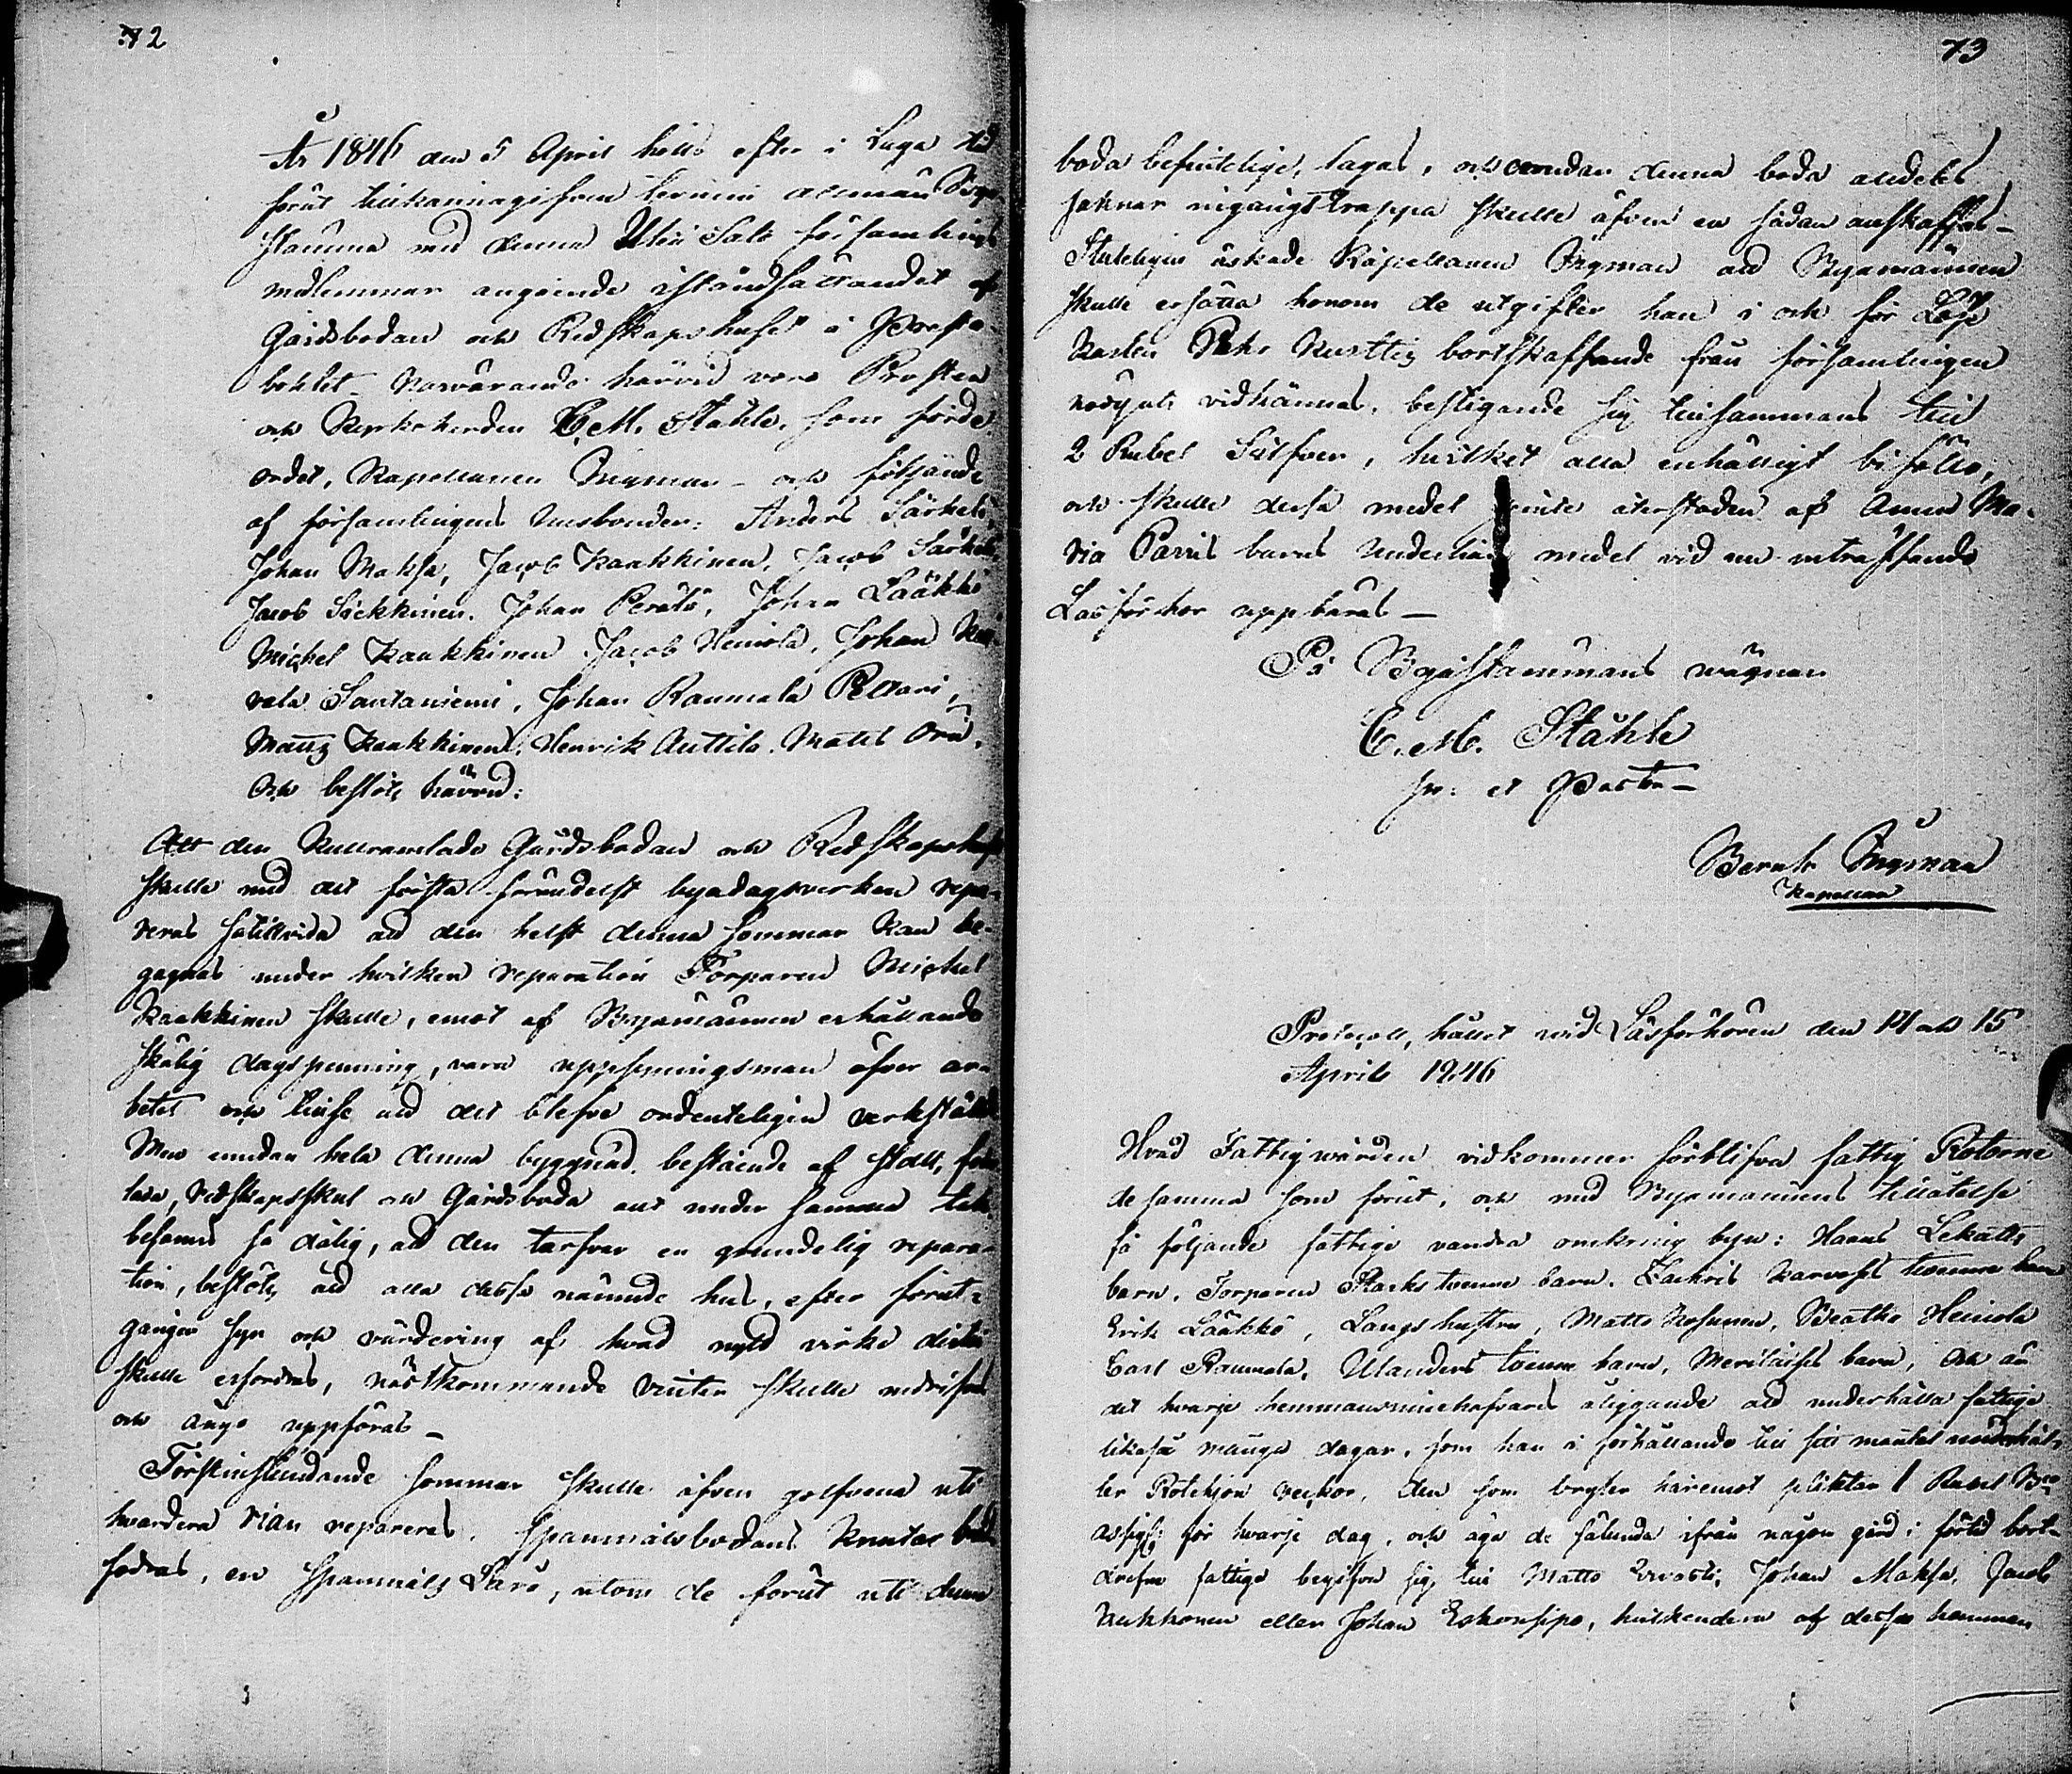 72
År 1846 den 5 April hölls efter i Laga tid
förut tillkännagifven termin allmän Bya
stämma med denna Ulfvi Salo församlings
medlemmar angående iståndsättandet af
Gårdsbodan och Redskapshuset å Preste
bohlet. Närvarande härvid voro Prosten
och Kyrkoherden C. M. Ståhle, som förde
ordet, Kapellanen Ingman – och följande
af församlingens Husbönder: Anders Särkelä,
Johan Maksa, Jacob Kaakkinen, Jacob Särkelä
Jacob Säikkinen, Johan Perälä, Johan Lääkkö
Michel Kaakkinen, Jacob Heinola, Johan
vala Santaniemi, Johan Raumala Peltari,
Matts Kaakkinen, Henrik Anttila, Matts Ora,
Och beslöts härvid:
Att den kullramlade Gårdsbodan och Redskapshuset
skulle med det första förmedelst byadagsverken repa-
reras såtillvida att den helst denna sommar kan be-
gagnas under hvilken reparation Torparen Michel
Kaakkinen skulle, emot af Byamännen erhållande
skälig dagspenning, vara uppsyningsman öfver ar-
betet och tillse att det blefve ordenteligen verkstäldt
Men emedan hela denna byggnad, bestående af stall,
lada, redskapsskul och Gårdsboda allt under samma tak
befanns så dålig, att den tarfvar en grundelig repara-
tion, beslöts att alla dessa nämnde hus, efter förut-
gången syn och värdering af hvad nytt virke dertill
skulle erfordras, nästkommande vinter skulle nedrifvas
och ånyo uppföras –
Förstinstundande sommar skulle äfven golfvena uti
hvardera rian repareras. Spannmålsbodans knutar bräd
fodras, en Spannmåls Laré, utom de förut uti denna
73
boda befintelige, lagas, och emedan denna boda alldeles
saknar ingångstrappa skulle äfven en sådan anskaffas –
Sluteligen äskade Kapellanen Ingman att Byamännen
skulle ersätta honom de utgifter han i och för Lös
karlen Pehr Kusttig bortskaffande från församlingen
nödgats vidkännas, bestigande sig tillsammans till
2 Rubel Silfver, hvilket alla enhälligt biföllo,
och skulle dessa medel jemte återstoden af Anna Ma-
ria Parris barns Underhålls medel vid nu inträffande
Läsförhör uppbäras –
På Byastämmans vägnar
C. M. Ståhle
pr. et Pastor –
Bernh Ingman
Kapellan
Protocoll, hållet vid Läsförhören den 14 och 15
April 1846
Hvad Fattigvården vidkommer förblifva fattig Rotorne
desamma som förut, och med Byamännens tillåtelse
få följande fattige vandra omkring byn: Hanns Lekatts
barn, Torparen Starks tvenne barn, Zachris Karvosis tvenne barn
Erik Lääkkö, Langs hustru, Matts Kosunen, Beatha Heinola
Carl Raumala, Ulanders tvenne barn, Meriläises barn, och är
det hvarje hemmansinnehafvares åliggande att underhålla fattige
likaså många dagar, som han i förhållande till sitt mantal underhål-
ler Rotehjon veckor, den som bryter häremot plikter 1 Rubel Bco
assign: för hvarje dag, och äga de sålunda ifrån någon gård i förtid bort-
drefne fattige begifva sig till Matts Ervasti, Johan Maksa, Jacob
Kukkonen eller Johan Eskonsipo, hvilkendera af dessa hemman